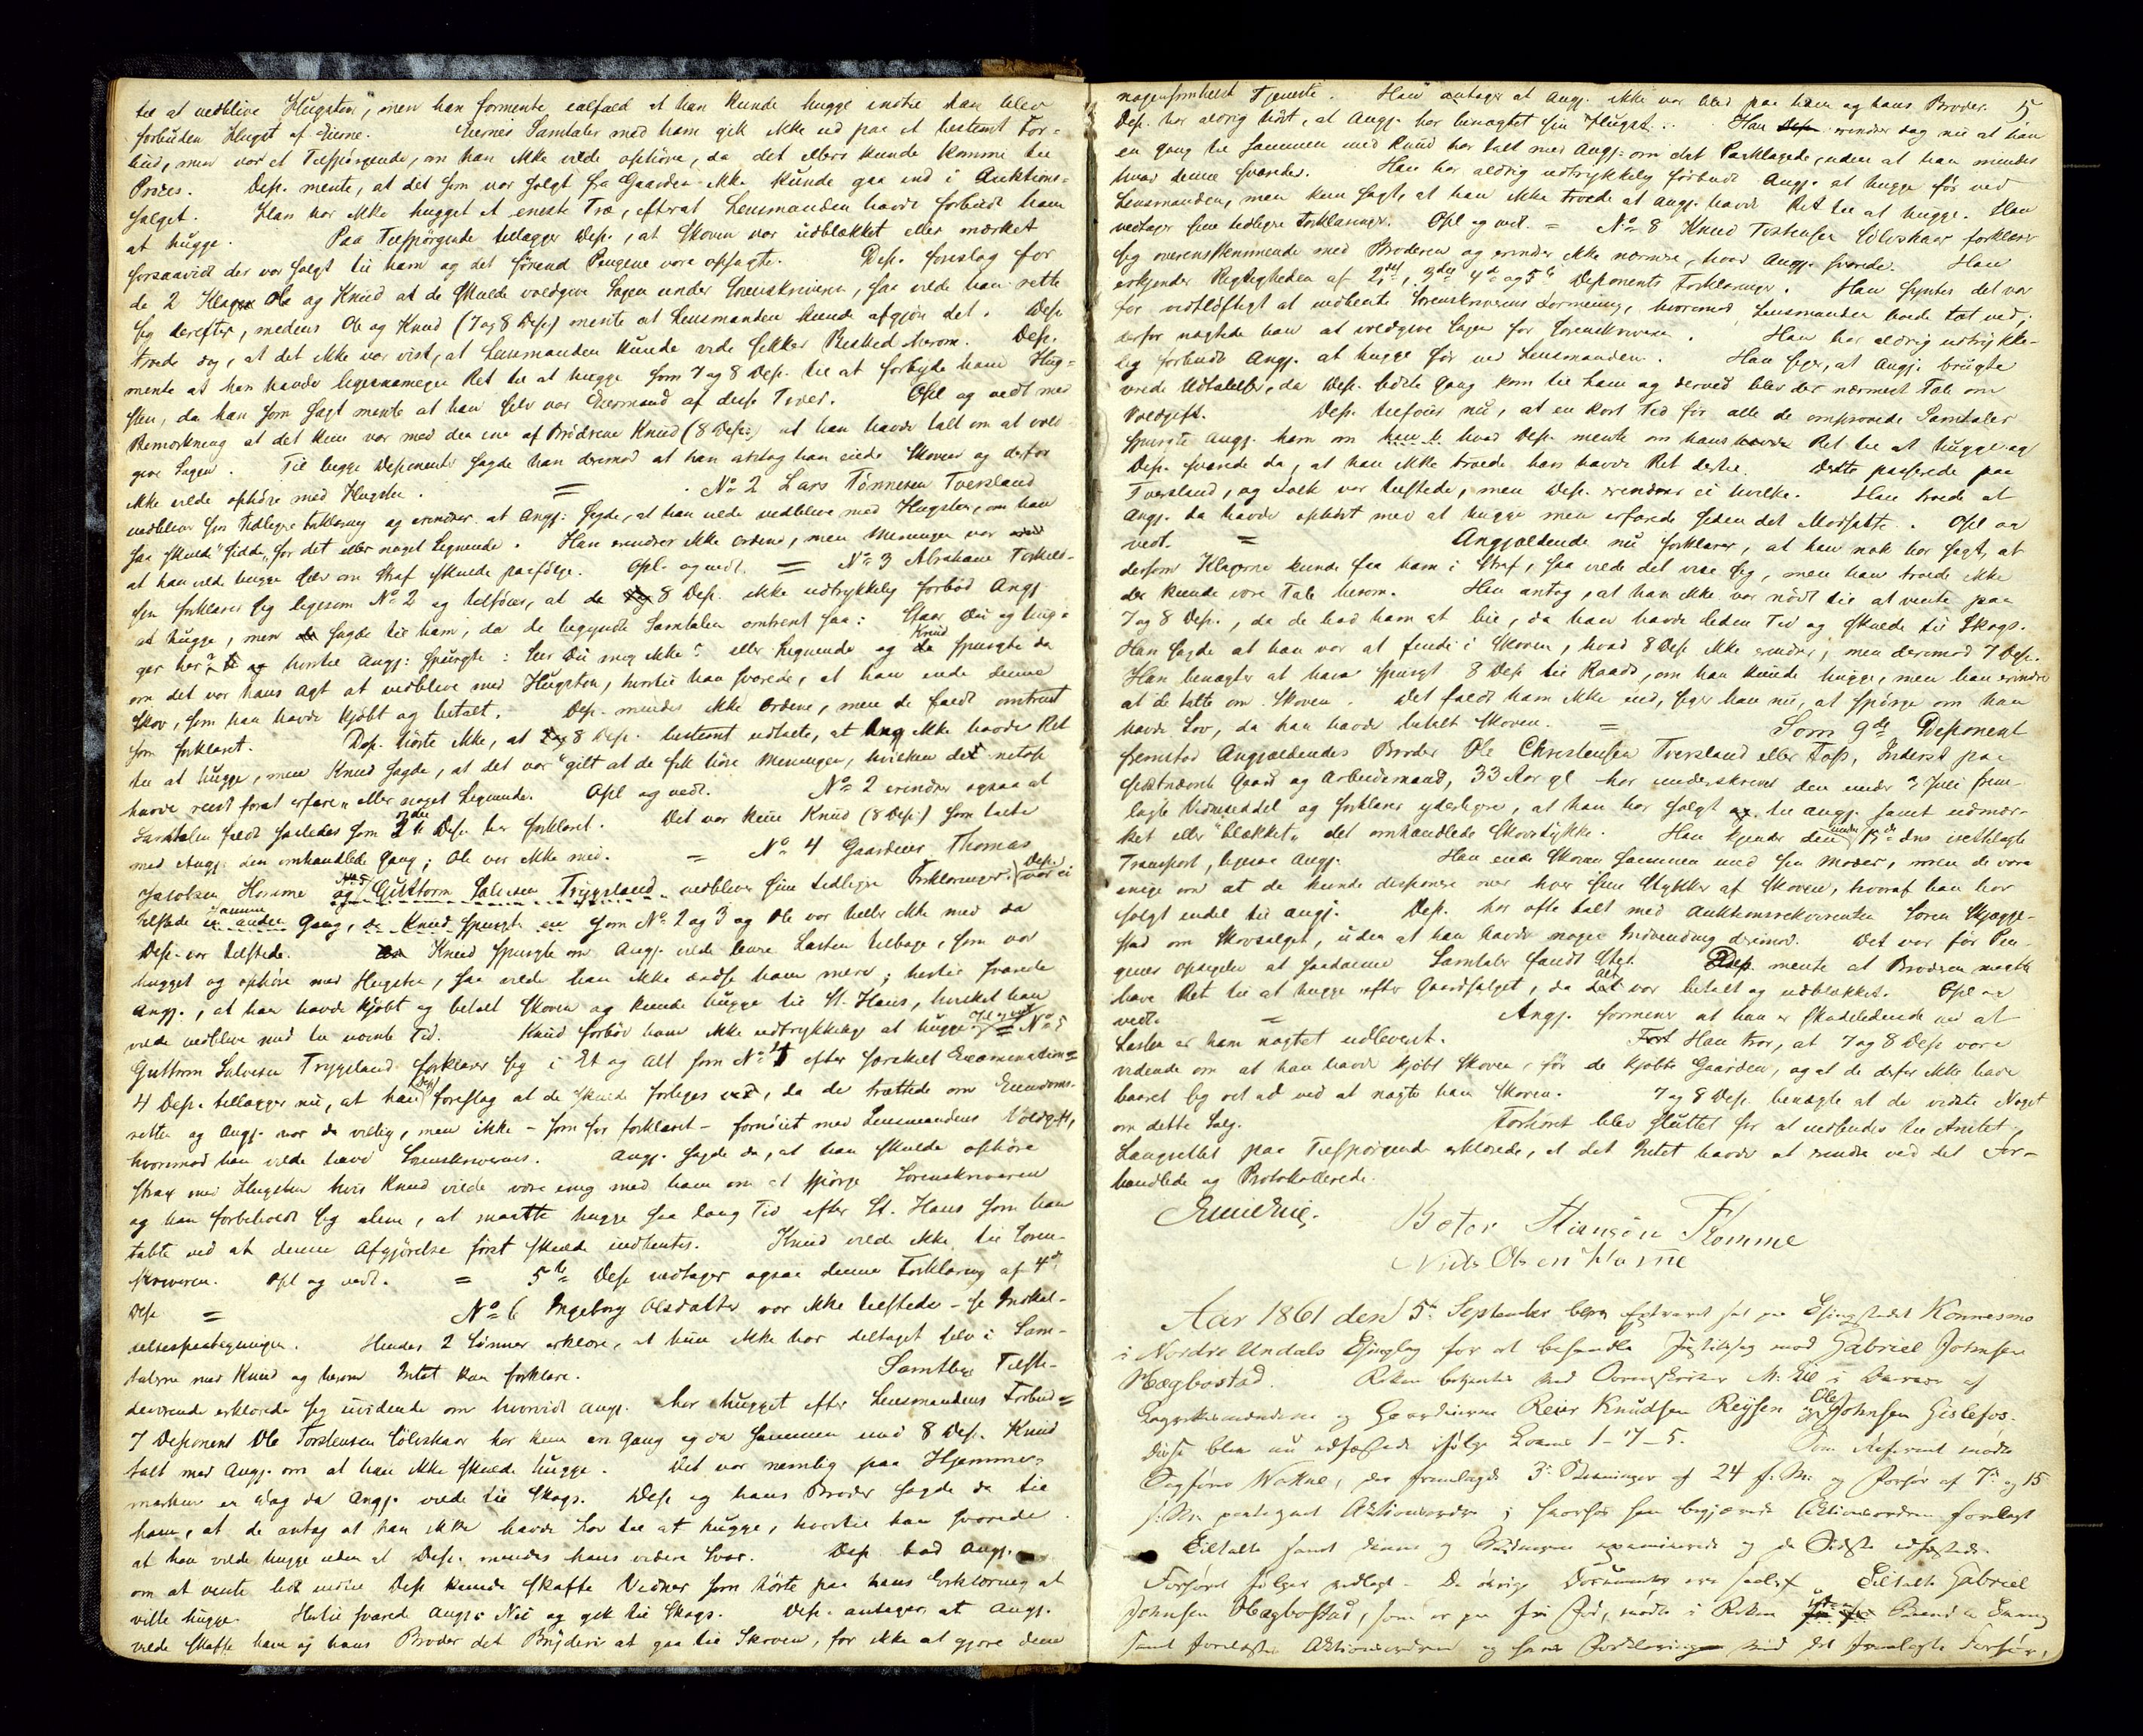 til at vedblive Hugsten", men han formente ialfald at han kunde hugge indtil han blev
forbuden Hugst af Eierne. Eiernes Samtaler med ham gik ikke ud paa et bestemt For-
bud, men var et Tilspørgende, om han ikke vilde ophøre, da det ellers kunde komme til
Proces. Dep. mente, at det som var solgt fra Gaarden ikke kunde gaa ind i Auktions-
salget. Han har ikke hugget et eneste Træ, efterat Lensmanden havde forbudt ham
at hugge. Paa Tilspørgende tillægger Dep., at Skoven var udblækket eller mærket
forsaavidt der var solgt til ham og det førend Pengene vare opsagte. Dep. foreslog for
de 2 Klagere Ole og Knud at de skulde voldgive Sagen under Sorenskriveren, saa vilde han rette
sig derefter, medens Ole og Knud (7 og 8 Dep.) mente at Lensmanden kunde afgjøre det. Dep.
troede dog, at det ikke var vist, at Lensmanden kunde vide sikker Besked herom. Dep.
mente at han havde ligesaamegen Ret til at hugge som 7 og 8 Dep. til at forbyde ham Hug-
sten, da han som sagt mente at han selv var Eiermand af disse Træer. Opl og vedt med
Bemærkning at det kun var med den ene af Brødrene Knud (8 Dep.) at han havde talt om at vold-
give Sagen. Til begge Deponenter sagde han derimod at han antog han eiede Skoven og derfor
ikke vilde ophøre med Hugsten. = No 2 Lars Tønnesen Tversland
vedbliver sin tidligere Forklaring og erindrer at Angj: sagde, at han vilde vedblive med Hugsten, om han
saa skulde "sidde" for det eller noget Lignende. Han erindrer ikke Ordene, men Meningen var
at han vilde hugge selv om Straf skulde paafølge. Opl. og vedt. = No 3 Abraham Torkels-
sen forklarer sig ligesom No 2 og tilføier, at 8 Dep. ikke udtrykkelig forbød Angj.
at hugge, men sagde til ham, da de begyndte Samtalen omtrent saa: Staar Du og hug-
ger her? hvortil Angj: spurgte: Seer Du mig ikke? eller Lignende og Knud spurgte da
om det var hans Agt at vedblive med Hugsten, hvortil han svarede, at han eiede denne
Skov, som han havde kjøbt og betalt. Dep. mindes ikke Ordene, men de faldt omtrent
som forklaret. Dep. hørte ikke, at 8 Dep. bestemt udtalte, at Ang ikke havde Ret
til at hugge, men Knud sagde, at det var "gilt at de fik høre Meningen, hvilken det netop
havde reist forat erfare" eller noget Lignende. Opl og vedt. No 2 erindrer ogsaa at
Samtalen faldt saaledes som 3die Dep. har forklaret. Det var kun Knud (8 Dep.) som talte
med Angj: den omhandlede Gang; Ole var ikke med. = No 4 Gaardmd Thomas
Jacobsen Homme og No 5 Guttorm Salvesen Trygsland vedbliver sine tidligere Forklaringer. Dep. var ei
tilstede samme Gang, som No 2 og 3 og Ole var heller ikke med da
Dep. var tilstede. Knud spurgte om Angj. vilde levere Lasten tilbage, som var
hugget og ophøre med Hugsten, saa vilde han ikke ændse ham mere; hertil svarede
Angj., at han havde kjøbt og betalt Skoven og kunde hugge til St. Hans, hvilket han
vilde vedblive med til nævnte Tid. Knud forbød ham ikke udtrykkelig at hugge. Opl og vedt = No 5
Guttorm Salvesen Trygsland forklarer sig i Et og Alt som No 4 efter særskilt Examination =
4 Dep. tillægger nu, at han (Dep) foreslog at de skulde forliges, da de trættede om Eiendoms-
retten og Angj. var da villig, men ikke - som før forklaret - fornøiet med Lensmandens Voldgift,
hvorimod han vilde have Sorenskriverens. Angj. sagde da, at han skulde ophøre
strax med Hugsten hvis Knud vilde være enig med ham om at spørge Sorenskriveren
og han forbeholdt sig alene, at maatte hugge saa lang Tid efter St. Hans som han
tabte ved at denne Afgjørelse først skulde indhentes. Knud vilde ikke til Soren-
skriveren. Opl og vedt. = 5te Dep vedtager ogsaa denne Forklaring af 4de
Dep = No 6 Ingeborg Olsdatter var ikke tilstede - se Indkal-
delsespaategningen. Hendes 2 Sønner erklære, at hun ikke har deltaget selv i Sam-
talerne med Knud og herom Intet kan forklare. Samtlige Tilste-
deværende erklærede sig uvidende om hvorvidt Angj. har hugget efter Lensmandens Forbud =
7 Deponent Ole Torstensen Sölvskaar har kun en Gang og da sammen med 8 Dep. Knud
talt med Angj. om at han ikke skulde hugge. Det var nemlig paa Hjemme-
marken en Dag da Angj. vilde til Skogs. Dep og hans Broder sagde da til
ham, at de antog at han ikke havde Lov til at hugge, hvortil han svarede
at han vilde hugge uden at Dep. mindes hans videre Svar. Dep. bad Angj.
om at vente lidt indtil Dep kunde skaffe Vidner som hørte paa hans Erklæring at
ville hugge. Hertil svarede Angj: Nei og gik til Skogs. Dep. antager at Angj.
vilde skaffe ham og hans Broder det Bryderi at gaa til Skoven, for ikke at gjøre dem
5
nogensomhelst Tjeneste. Han antager at Angj. ikke var vred paa ham og hans Broder.
Dep. har aldrig hørt, at Angj. har benægtet sin Hugst. Han erindrer dog nu at han
en Gang til sammen med Knud har talt med Angj: om det Paaklagede, uden at han mindes
hvad denne svarede. Han har aldrig udtrykkelig forbudt Angj. at hugge før ved
Lensmanden, men kun sagt, at han ikke troede at Angj. havde Ret til at hugge. Han
vedtager sine tidligere Forklaringer. Opl og vedt. = No 8 Knud Tostensen Sölvskaar forklarer
sig overensstemmende med Broderen og erindrer ikke nærmere, hvad Angj. svarede. Han
erkjender Rigtigheden af 2den, 3die, 4de og 5te Deponents Forklaringer. Han syntes det var
for vidtløftigt at indhente Sorenskriverens Formening, hvorimod Lensmanden boede tæt ved;
derfor nægtede han at voldgive Sagen for Sorenskriveren. Han har aldrig udtrykke-
lig forbudt Angj. at hugge før ved Lensmanden. Han siger, at Angj. brugte
vrede Udtalelser, da Dep. sidste Gang kom til ham og derved blev der nærmest Tale om
Voldgift. Dep. tilføier nu, at en kort Tid før alle de omprovede Samtaler
spurgte Angj. ham om hvad Dep. mente om hans Ret til at hugge og
Dep. svarede da, at han ikke troede han havde Ret dertil. Dette passerede paa
Tversland, og Folk var tilstede, men Dep. erindrer ei hvilke. Han troede at
Angj. da havde ophørt med at hugge men erfarede siden det Modsatte. Opl og
vedt. = Angjældende nu forklarer, at han nok har sagt, at
dersom Klagerne kunde faa ham i Straf, saa vilde det vise sig, men han troede ikke
der kunde være Tale herom. Han antog, at han ikke var nødt til at vente paa
7 og 8 Dep., da de bad ham at bie, da han havde liden Tid og skulde til Skogs.
Han sagde at han var at finde i Skoven, hvad 8 Dep ikke erindrer, men derimod 7 Dep.
Han benægter at have spurgt 8 Dep til Raads, om han kunde hugge, men han erindrer
at de talte om Skoven. Det faldt ham ikke ind, siger han nu, at spørge om han
havde Lov, da han havde betalt Skoven. = Som 9de Deponent
fremstod Angjældendes Broder Ole Christensen Tversland eller Foss, Inderst paa
sidstnævnte Gaard og Arbeidsmand, 33 Aar gl har underskrevet den under 2 Juli frem-
lagte Vidneseddel og forklarer yderligere, at han har solgt til Angj. samt udmær-
ket eller "blækket" det omhandlede Skovstykke. Han kjender den under 15de ds irettelagte
Transport, ligesaa Angj. Han eiede Skoven sammen med sin Moder, men de vare
enige om at de kunde disponere over hver sine Stykker af Skoven, hvoraf han har
solgt endel til Angj. Dep. har ofte talt med Auktionsrekvirenten Søren Skjægge-
stad om Skovsalget, uden at han havde nogen Indvending derimod. Det var før Pen-
genes Opsigelse at saadanne Samtaler fandt Sted. Dep. mente at Broderen maatte
have Ret til at hugge efter Gaardsalget, da alt var betalt og udblækket. Opl og
vedt. = Angj. formener at han er skadelidende ved at
Lasten er ham nægtet udleveret. Han tror, at 7 og 8 Dep vare
vidende om at han havde kjøbt Skoven, før de kjøbte Gaarden, og at de derfor ikke have
baaret sig ret ad ved at nægte ham Skoven. 7 og 8 Dep. benægte at de vidste Noget
om dette Salg. Forhøret blev sluttet for at indsendes til Amtet
Laugrettet paa Tilspørgende erklærede, at det Intet havde at erindre ved det For-
handlede og Protokollerede.
Peter Stiansøn Homme
Niels Olsen Homme
Aar 1861 den 5te September blev Extraret sat paa Thingstedet Konnesmo
i Nordre Undals Thinglag for at behandle Justitssag mod Gabriel Johnsen
Hægbostad. Retten betjentes med Sorenskriver M: Lie i Overvær af
Laugrettesmændene og Gaardmændene Reier Knudsen Reysen og Ole Johnsen Gislefos.
Disse blev nu edfæstede ifølge Lovens 1-7-5. Som Aktor mødte
Sagfører Wattne, der fremlagde 3 Stevninger af 24 f: M: og Forhør af 7de og 15
f: M: paategnet Aktionsordre; hvorfor han begjærede Aktionsordren forelæst
Tiltalte samt denne og Vidnerne examinerede og de Sidste edfæstede.
Forhøret følger vedlagt. De øvrige Documenter ere saal: Tiltalte Gabriel
Johnsen Hægbostad, som er paa fri Fod, mødte i Retten uden Baand og Tvang
samt forelæstes Aktionsordren og hans Forklaringer ved det fremlagte Forhør,